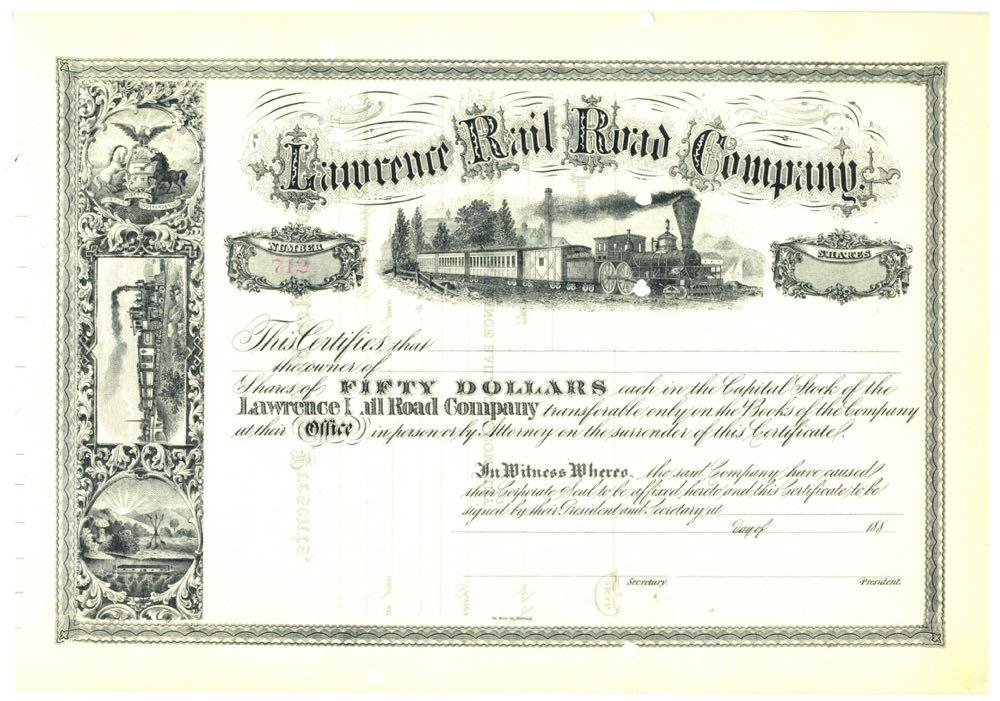 Lawrence Rail Road Company.
NUMBER
712
SHARES
This Certifies that
the owner of
Shares of FIFTY DOLLARS each in the Capital Stock of the
Lawrence Rail Road Company transferable only on the Books of the Company
at their Office in person or by Attorney on the surrender of this Certificate.
In Witness Whereof, the said Company have caused
their Corporate Seal to be affixed hereto and this Certificate to be
signed by their President and Secretary at
day of 188
Secretary. President.